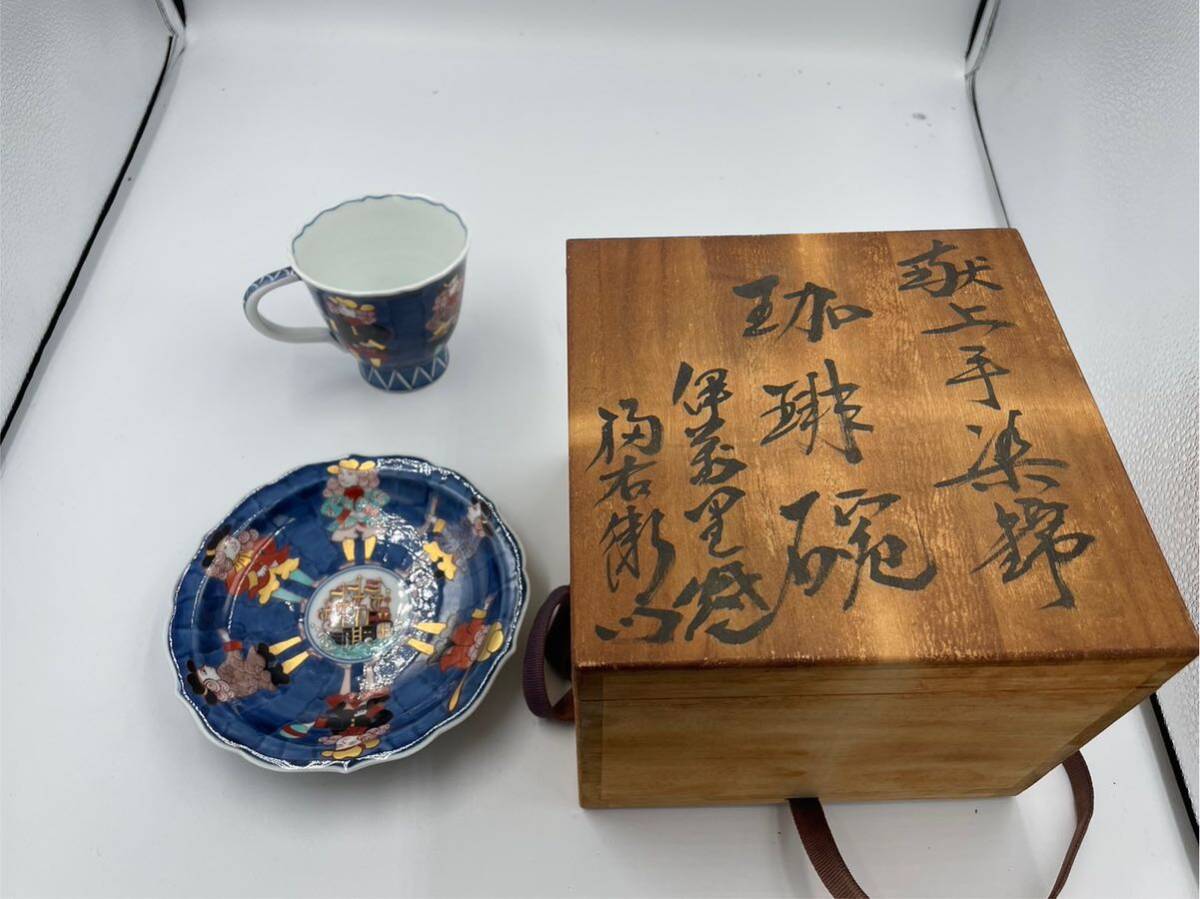 献上手染錦
珈琲碗
伊万里焼
陶右衛門